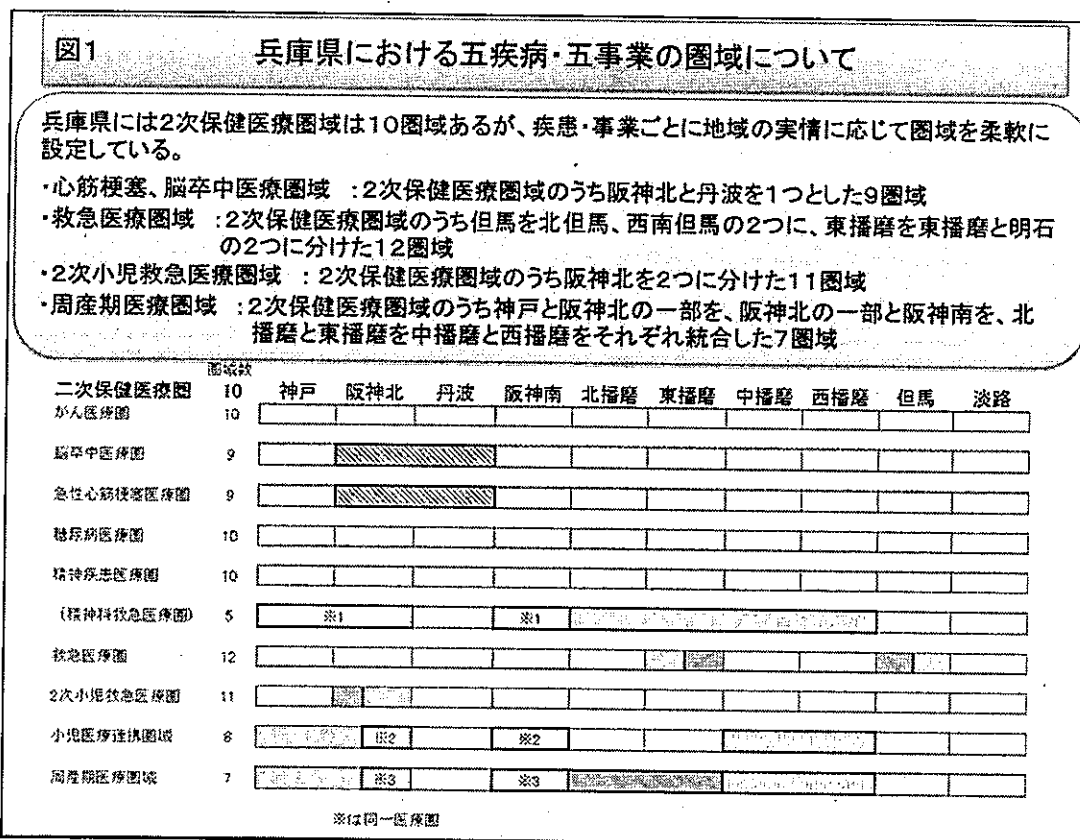 図1 兵庫県における五疾病・五事業の圏域について
兵庫県には2次保健医療圏域は10圏域あるが、疾患・事業ごとに地域の実情に応じて圏域を柔軟に
設定している。
・心筋梗塞、脳卒中医療圏域 :2次保健医療圏域のうち阪神北と丹波を1つとした9圏域
・救急医療圏域 :2次保健医療圏域のうち但馬を北但馬、西南但馬の2つに、東播磨を東播磨と明石
の2つに分けた12圏域
・2次小児救急医療圏域 :2次保健医療圏域のうち阪神北を2つに分けた11圏域
・周産期医療圏域 :2次保健医療圏域のうち神戸と阪神北の一部を、阪神北の一部と阪神南を、北
播磨と東播磨を中播磨と西播磨をそれぞれ統合した7圏域
圏域数
二次保健医療圏 10 神戸 阪神北 丹波 阪神南 北播磨 東播磨 中播磨 西播磨 但馬 淡路
がん医療圏 10
脳卒中医療圏 9
急性心筋梗塞医療圏 9
糖尿病医療圏 10
精神疾患医療圏 10
(精神科救急医療圏) 5 ※1 ※1
救急医療圏 12
2次小児救急医療圏 11
小児医療連携圏域 8 ※2 ※2
周産期医療圏域 7 ※3 ※3
※は同一医療圏